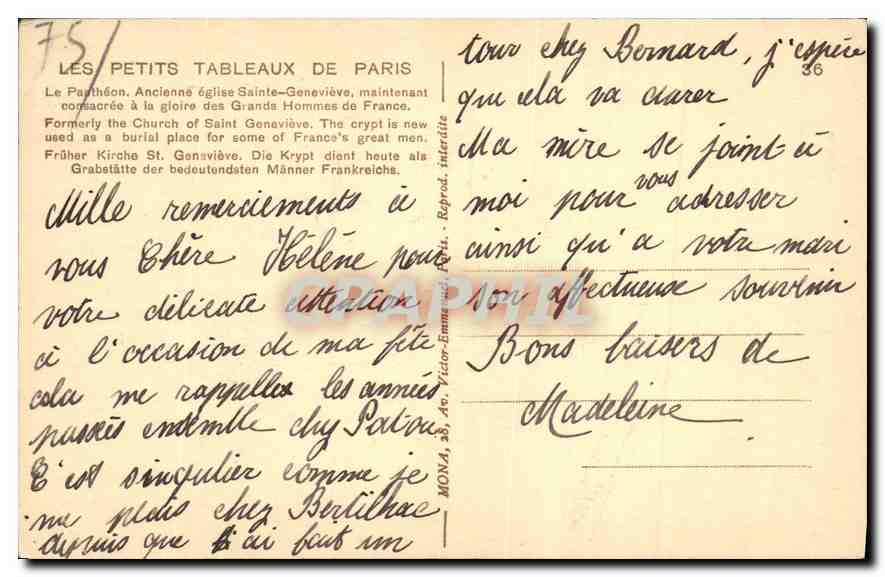 75/
LES PETITS TABLEAUX DE PARIS
Le Panthéon. Ancienne église Sainte-Geneviève, maintenant
consacrée à la gloire des Grands Hommes de France.
Formerly the Church of Saint Geneviève. The crypt is new
used as a burial place for some of France's great men.
Früher Kirche St. Geneviève. Die Krypt dient heute als
Grabstätte der bedeutendsten Männer Frankreichs.
Mille remerciements à
vous Chère Hélène pour
votre délicate attention
à l'occasion de ma fête
cela me rappelle les années
passées ensemble chez Patou
C'est singulier comme je
me plais chez Bertilhac
depuis que j'ai fait un
MONA, 28, Av. Victor-Emmanuel, Paris. - Reprod. interdite
36
tour chez Bernard, j'espère
que cela va durer
Ma mère se joint à
moi pour vous adresser
ainsi qu'a votre mari
son affectueux souvenir
Bons baisers de
Madeleine
CPAPHIL